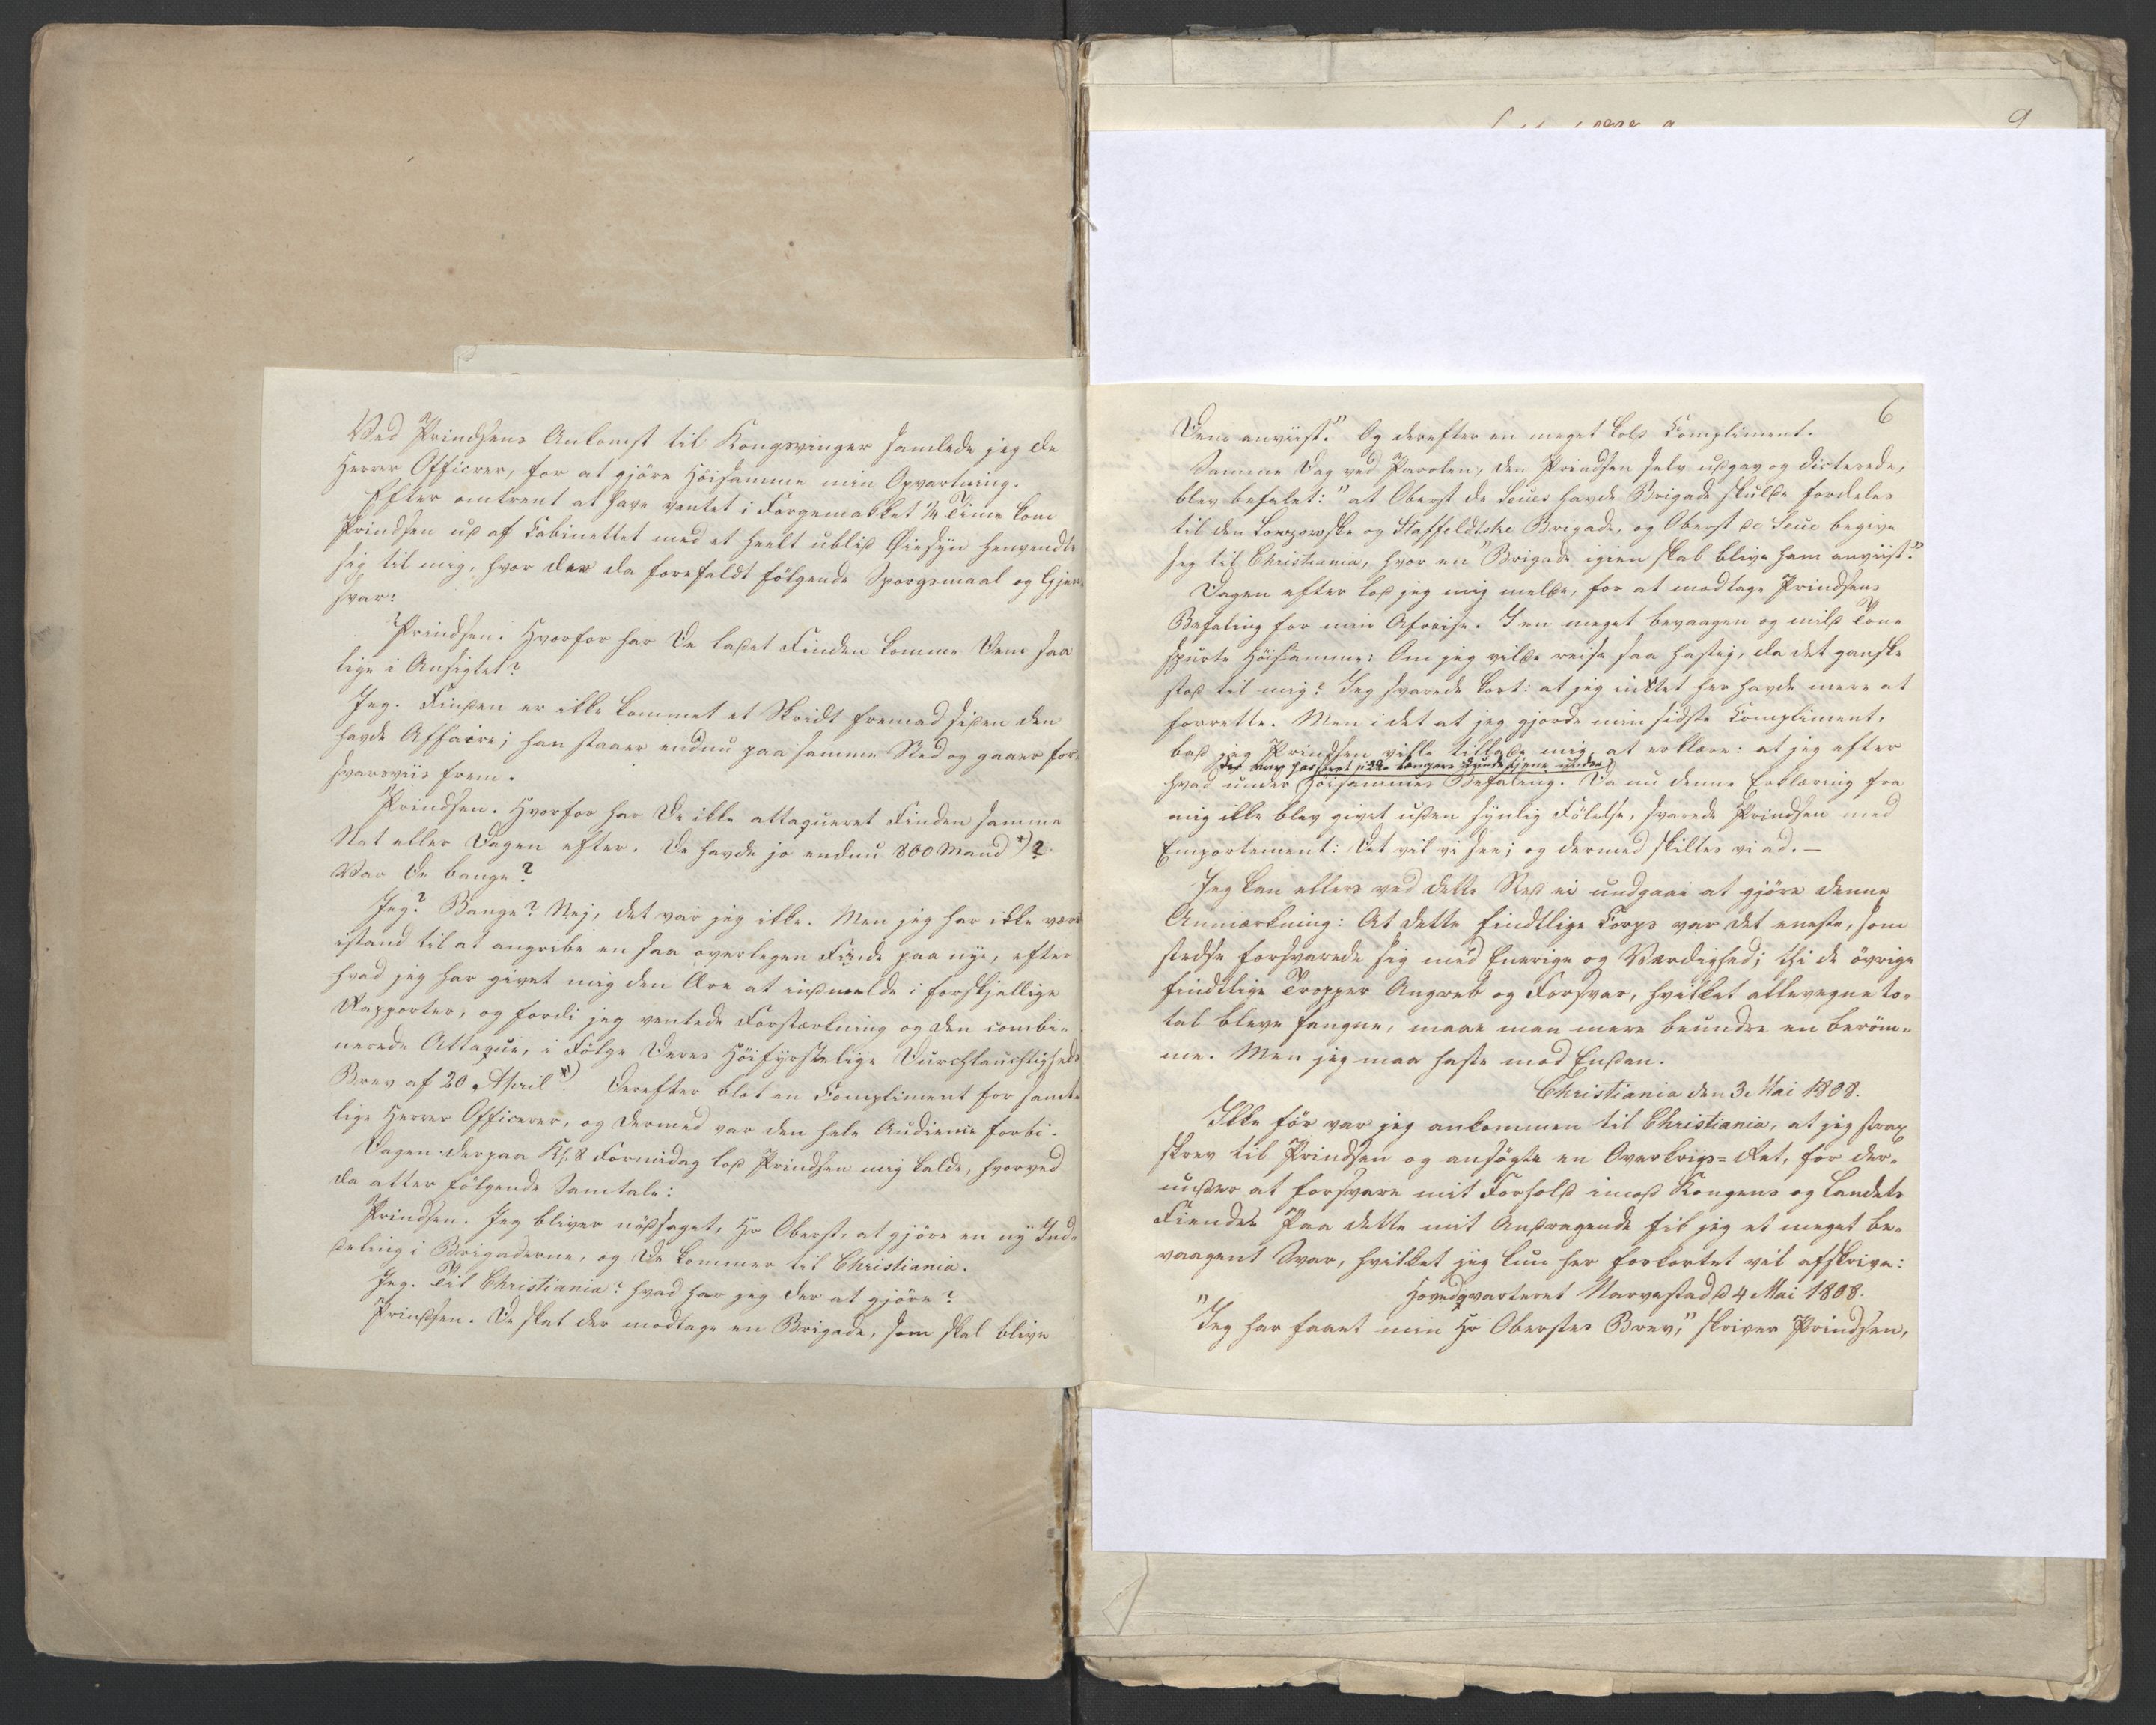 Ved Prindsens Ankomst til Kongsvinger samlede jeg de
Herrer Officerer, for at gjöre Höisamme min Opvartning.
Efter omtrent at have ventet i Forgemakket ¼ Time kom
Prindsen ud af Cabinettet med et heelt ublid Øiesyn henvendte
sig til mig, hvor der da forefaldt fölgende Spörgsmaal og Gjen-
svar:
Prindsen. Hvorfor har De ladet Finden komme Dem saa
lige i Ansigtet?
Jeg. Finden er ikke kommet et Skridt fremad siden den
havde Affaire; han staaer endnu paa samme Sted og gaaer for-
svarsviis frem.
Prindsen. Hvorfor har De ikke attaqueret Finden samme
Nat eller Dagen efter. De havde jo endnu 800 Mand *)?
Var De bange?
Jeg? Bange? Nej, det var jeg ikke. Men jeg har ikke være
istand til at angribe en saa overlegen Finde paa nye, efter
hvad jeg har givet mig den Ære at indmelde i forskjellige
Rapporter, og fordi jeg ventede Forstærkning og den combi-
nerede Attaque, i Fölge Deres Höifyrstelige Durchlauchtigheds
Brev af 20 April *). Derefter blot en Compliment for samt-
lige Herrer Officerer, og dermed var den hele Audience forbi.
Dagen derpaa Kl. 8 Formidag lod Prindsen mig kalde, hvorved
da atter fölgende Samtale:
Prindsen. Jeg bliver nödsaget, Hr Oberst, at gjöre en ny Ind-
deling i Brigaderne, og De kommer til Christiania.
Jeg. Til Christiania? hvad har jeg der at gjöre?
Prindsen. De skal der modtage en Brigade, som skal blive
6
Dem anviist." Og derefter en meget kold Compliment.
Samme Dag ved Parolen, den Prindsen selv udgav og dicterede,
blev befalet: "at Oberst de Seues havde Brigade skulde fordeles
til den Lowzowske og Staffeldtske Brigade, og Oberst de Seue begive
sig til Christiania, hvor en "Brigade igien skal blive ham anviist."
Dagen efter lod jeg mig melde, for at modtage Prindsens
Befaling for min Afreise. I en meget bevaagen og mild Tone
spurte Höisamme: Om jeg vilde reise saa hastig, da det ganske
stod til mig? Jeg svarede kort: at jeg intet her havde mere at
forrette. Men i det at jeg gjorde min sidste Compliment,
bad jeg Prindsen ville tillade mig at erklære: at jeg efter
der var passeret ikke længere kunde tjene under
hvad under Höisammes Befaling. Da nu denne Erklæring fra
mig ikke blev givet uden synlig Fölelse, svarede Prindsen med
Emportement: Det vil vi see; og dermed skiltes vi ad. —
Jeg kan ellers ved dette Sted ei undgaae at gjöre denne
Anmærkning: At dette findtlige Corps var det eneste, som
stedse forsvarede sig med Enerige og Værdighed; thi de övrige
findtlige Tropper Angreb og Forsvar, hvilket allevegne to-
tal bleve fangne, maae man mere beundre en beröm-
me. Men jeg maa haste mod Enden.
Christiania den 3. Mai 1808.
Ikke för var jeg ankommen til Christiania, at jeg strax
skrev til Prindsen og ansögte en Overkrigs=Ret, for der-
under at forsvare mit Forhold imod Kongens og Landets
Fiender. Paa dette mit Andragende fik jeg et meget be-
vaagent Svar, hvilket jeg kun her forkortet vil afskrive:
Hovedqvarteret Narvestad d 4 Mai 1808.
"Jeg har faaet min Hr Oberstes Brev," skriver Prindsen,